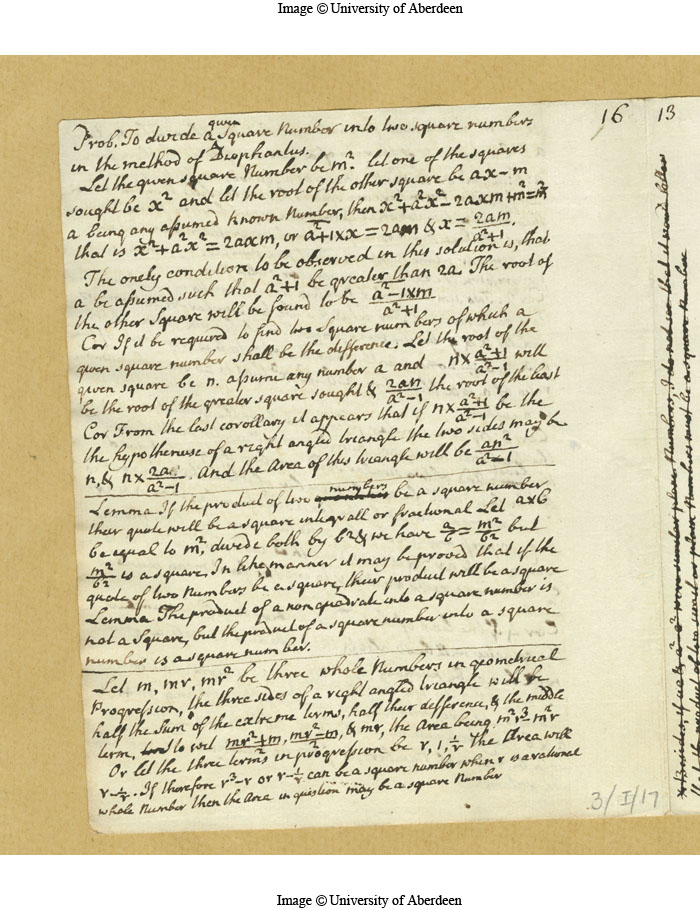 Image © University of Aberdeen
16
13
Prob. To divide a given Square Number into two square numbers
in the method of Diophantus.
Let the given square Number be m². let one of the squares
sought be x² and let the root of the other square be ax - m
a being any assumed known Number, then x²+a²x²-2axm+m²=m²
that is x²+a²x² = 2axm, or a²+1×x = 2am & x = 2am/a²+1.
The onely condition to be observed in this solution is, that
a be assumed such that a²+1 be greater than 2a. The root of
the other Square will be found to be a²-1×m/a²+1
Cor If it be required to find two Square numbers of which a
given square number shall be the difference. Let the root of the
given square be n. assume any number a and n×a²+1/a²-1 will
be the root of the greater square sought & 2an/a²-1 the root of the least
Cor From the last corollary it appears that if n×a²+1/a²-1 be the
the hypothenuse of a right angled triangle the two sides may be
n, & n×2a/a²-1. And the Area of this triangle will be an²/a²-1
Lemma If the product of two numbers be a square number
their quote will be a square integrall or fractional Let a×b
be equal to m², divide both by b² & we have a/b = m²/b² but
m²/b² is a square. In like manner it may be proved that if the
quote of two Numbers be a square, their product will be a square
Lemma The product of a nonquadrate into a square number is
not a Square, but the product of a square number into a square
number is a square number.
Let m, mr, mr² be three whole Numbers in geometrical
Progression, the three sides of a right angled triangle will be
half the Sum of the extreme terms, half their difference, & the middle
term, to wit mr²+m/2, mr²-m/2, & mr, the Area being m²r³-m²r
Or let the three terms in progression be r, 1, 1/r the Area will
r-1/r. If therefore r³-r or r-1/r can be a square number when r is a rational
whole Number then the Area in question may be a square Number
3/I/17
Image © University of Aberdeen